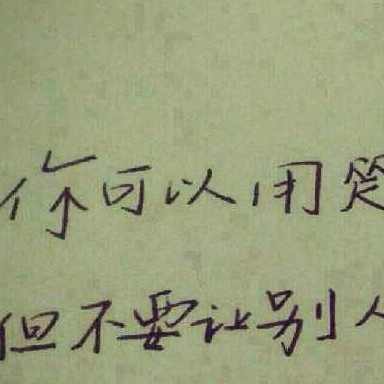 你可以用笑
但不要让别人